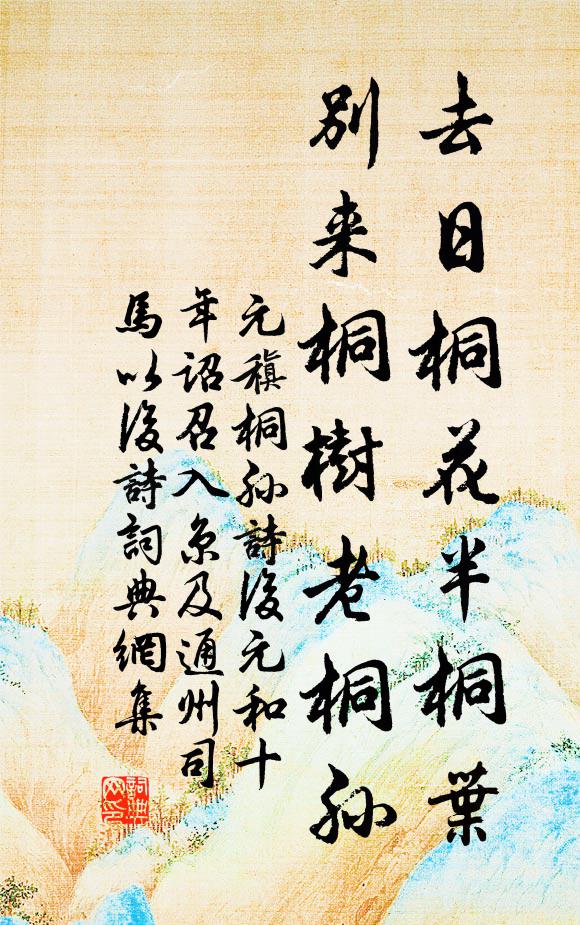 去日桐花半桐葉
別来桐樹老桐孫
元稹桐孫詩後元和十
年詔召入京及通州司
馬以後詩詞典網集
詞典网印